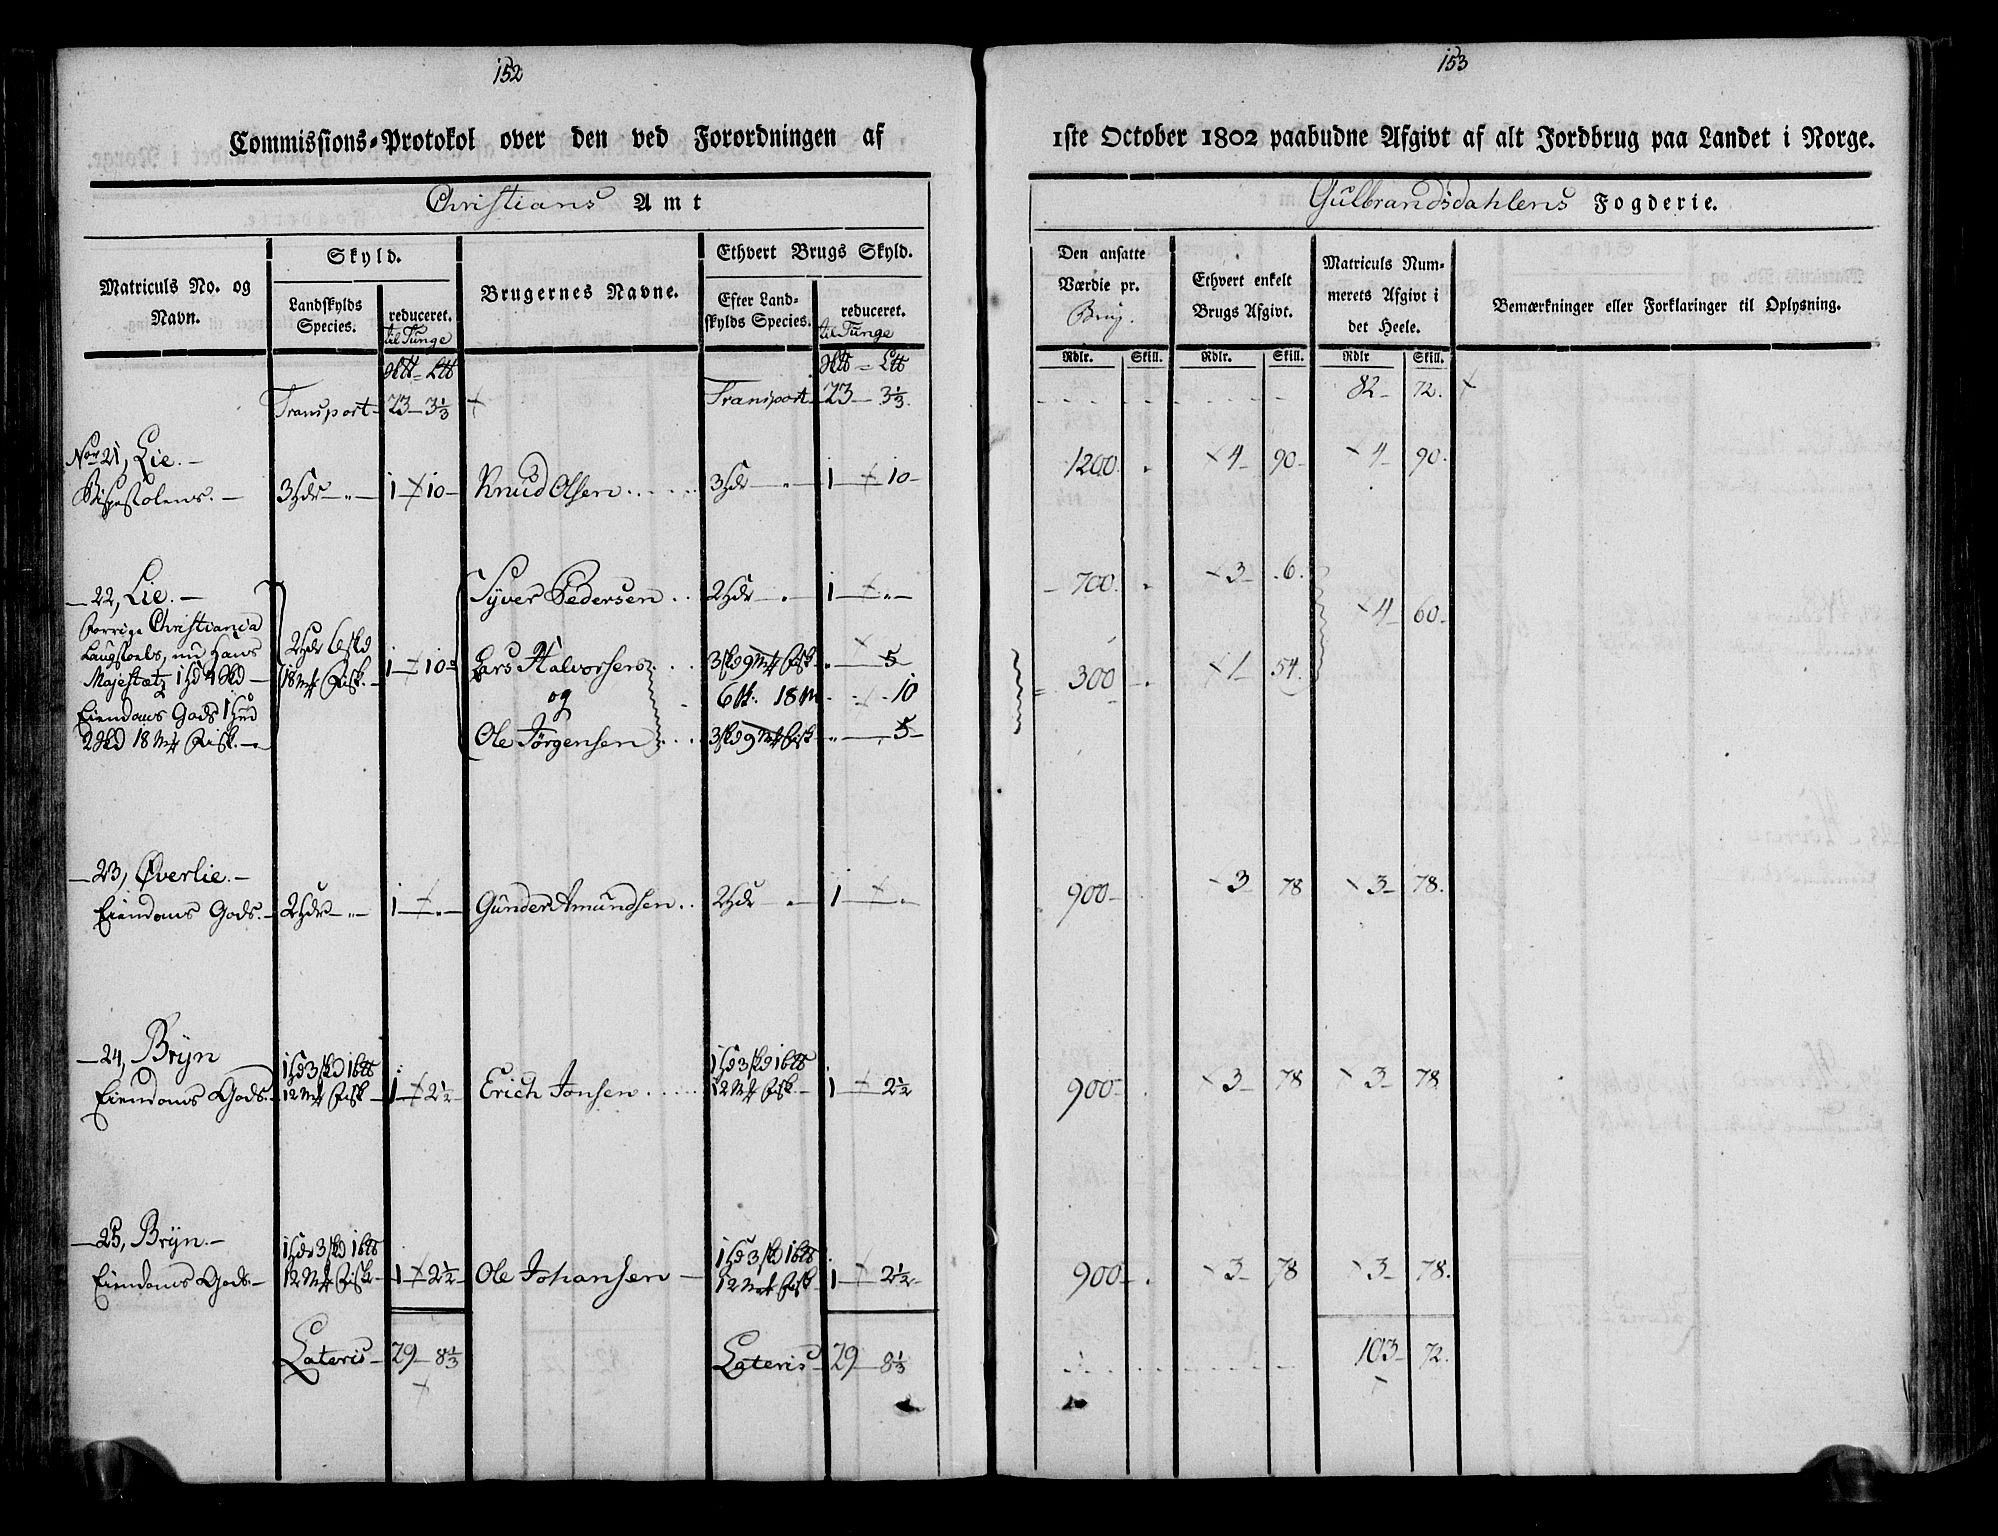 152
Commissions-Protokol over den ved Forordningen af
Christians Amt
Matriculs No. og Navn.
Skyld.
Landskylds Species.
reduceret. til Tunge
Brugernes Navne.
Ethvert Brugs Skyld.
Efter Landskylds Species.
reduceret. til Tunge
Transport 23 3 1/3 Transport 23 3 1/3
Nor 21, Lie.
Bispestolens. 3 Hdr 1 10 Knud Olsen 3 Hdr 1 10
22, Lie. Syver Pedersen 2 Hdr 1
forrige Christiania
Laugstoels, nu Hans 2 Hdr 6 skd 1 10 Lars Halvorsen 3 skd 9 Mk Fisk 5
Majestætz 1 Hd 4 Skd 18 Mk Fisk og 6 18 M 10
Eiendoms Gods 1 Hud
2 Skd 18 Mk Fisk. Ole Jörgensen 3 skd 9 Mk Fisk 5
23, Øverlie.
Eiendoms Gods. 2 Hdr 1 Gunder Amundsen 2 Hdr 1
24, Bryn 1 Hd 3 skd 1 1 Hd 3 skd 1
Eiendoms Gods. 12 Mk Fisk 1 2 1/2 Erich Jonsen 12 Mk Fisk 1 2 1/2
25, Bryn. 1 Hd 3 skd 1 1 Hd 3 skd 1
Eiendoms Gods 12 Mk Fisk 1 2 1/2 Ole Johansen 12 Mk Fisk 1 2 1/2
Lateris 29 8 1/3 Lateris 29 8 1/3
153
1ste October 1802 paabudne Afgivt af alt Jordbrug paa Landet i Norge.
Gulbrandsdahlens Fogderie.
Den ansatte Værdie pr. Brug.
Ethvert enkelt Brugs Afgivt.
Matriculs Nummerets Afgivt i det Heele.
Bemærkninger eller Forklaringer til Oplysning.
Rdlr. Skill. Rdlr. Skill. Rdlr Skill.
82 72.
1200 4 90 4 90.
700 3 6.
4 60
300 1 54.
900 3 78 3 78.
900 3 78 3 78
900 3 78 3 78.
103 72.